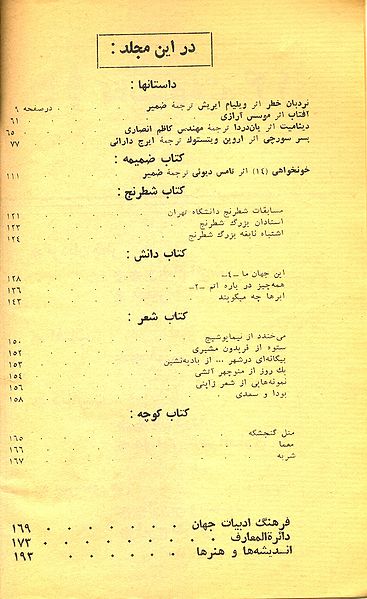 در این مجلد :
داستانها :
نردبان خطر اثر ویلیام ایریش ترجمهٔ ضمیر . . درصفحه ۹
آفتاب اثر موسس آرازی . . . . . ۶۱
دینامیت اثر یان‌دردا ترجمهٔ مهندس کاظم انصاری . . ۶۵
پسر سورچی اثر اروین ویتستوك ترجمهٔ ایرج دارائی . ۷۷
کتاب ضمیمه :
خونخواهی (۱۴) اثر تامس دیوئی ترجمهٔ ضمیر . . . ۱۱۱
کتاب شطرنج :
مسابقات شطرنج دانشگاه تهران . . . . ۱۲۱
استادان بزرگ شطرنج . . . . . ۱۲۳
اشتباه نابغه بزرگ شطرنج . . . . . ۱۲۴
کتاب دانش :
این جهان ما -۴- . . . . . ۱۲۸
همه‌چیز در باره اتم -۲- . . . . . ۱۳۶
ابرها چه میگویند . . . . . ۱۴۳
کتاب شعر :
می‌خندد از نیمایوشیج . . . . . ۱۵۰
ستوه از فریدون مشیری . . . . . ۱۵۲
بیگانه‌ای درشهر ... از بادیه‌نشین . . . . ۱۵۳
یك روز از منوچهر آتشی . . . . . ۱۵۴
نمونه‌هایی از شعر ژاپنی . . . . . ۱۵۶
بودا و سعدی . . . . . ۱۵۸
کتاب کوچه :
متل گنجشکه . . . . . ۱۶۵
معما . . . . . ۱۶۶
شربه . . . . . ۱۶۷
فرهنگ ادبیات جهان . . . . . ۱۶۹
دائرة‌المعارف . . . . . ۱۷۳
اندیشه‌ها و هنرها . . . . . ۱۹۳